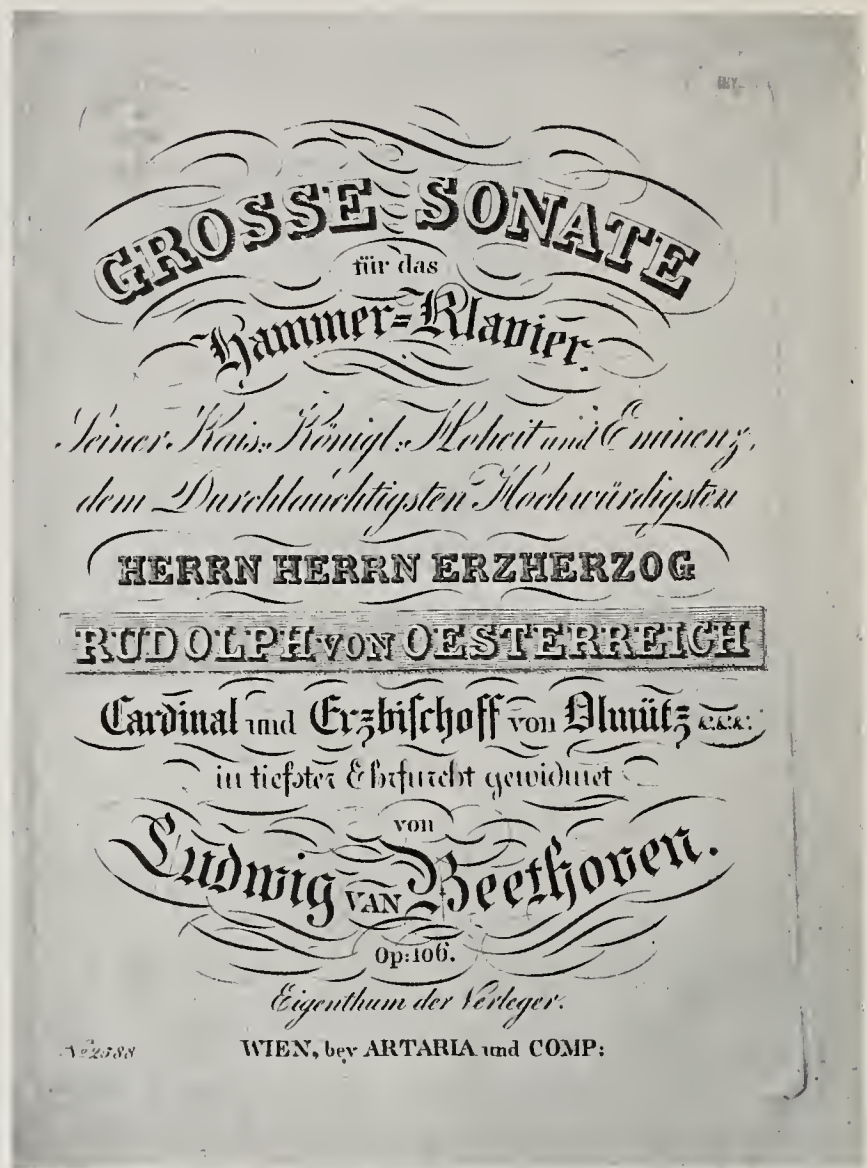 GROSSE SONATE
für das
Hammer=Klavier.
Seiner Kais: Königl: Hoheit und Eminenz,
dem Durchlauchtigsten Hochwürdigsten
HERRN HERRN ERZHERZOG
RUDOLPH VON OESTERREICH
Cardinal und Erzbischoff von Olmütz &.&.&:
in tiefster Ehrfurcht gewidmet
von
Ludwig VAN Beethoven.
Op: 106.
Eigenthum der Verleger.
No 2588
WIEN, bey ARTARIA und COMP: